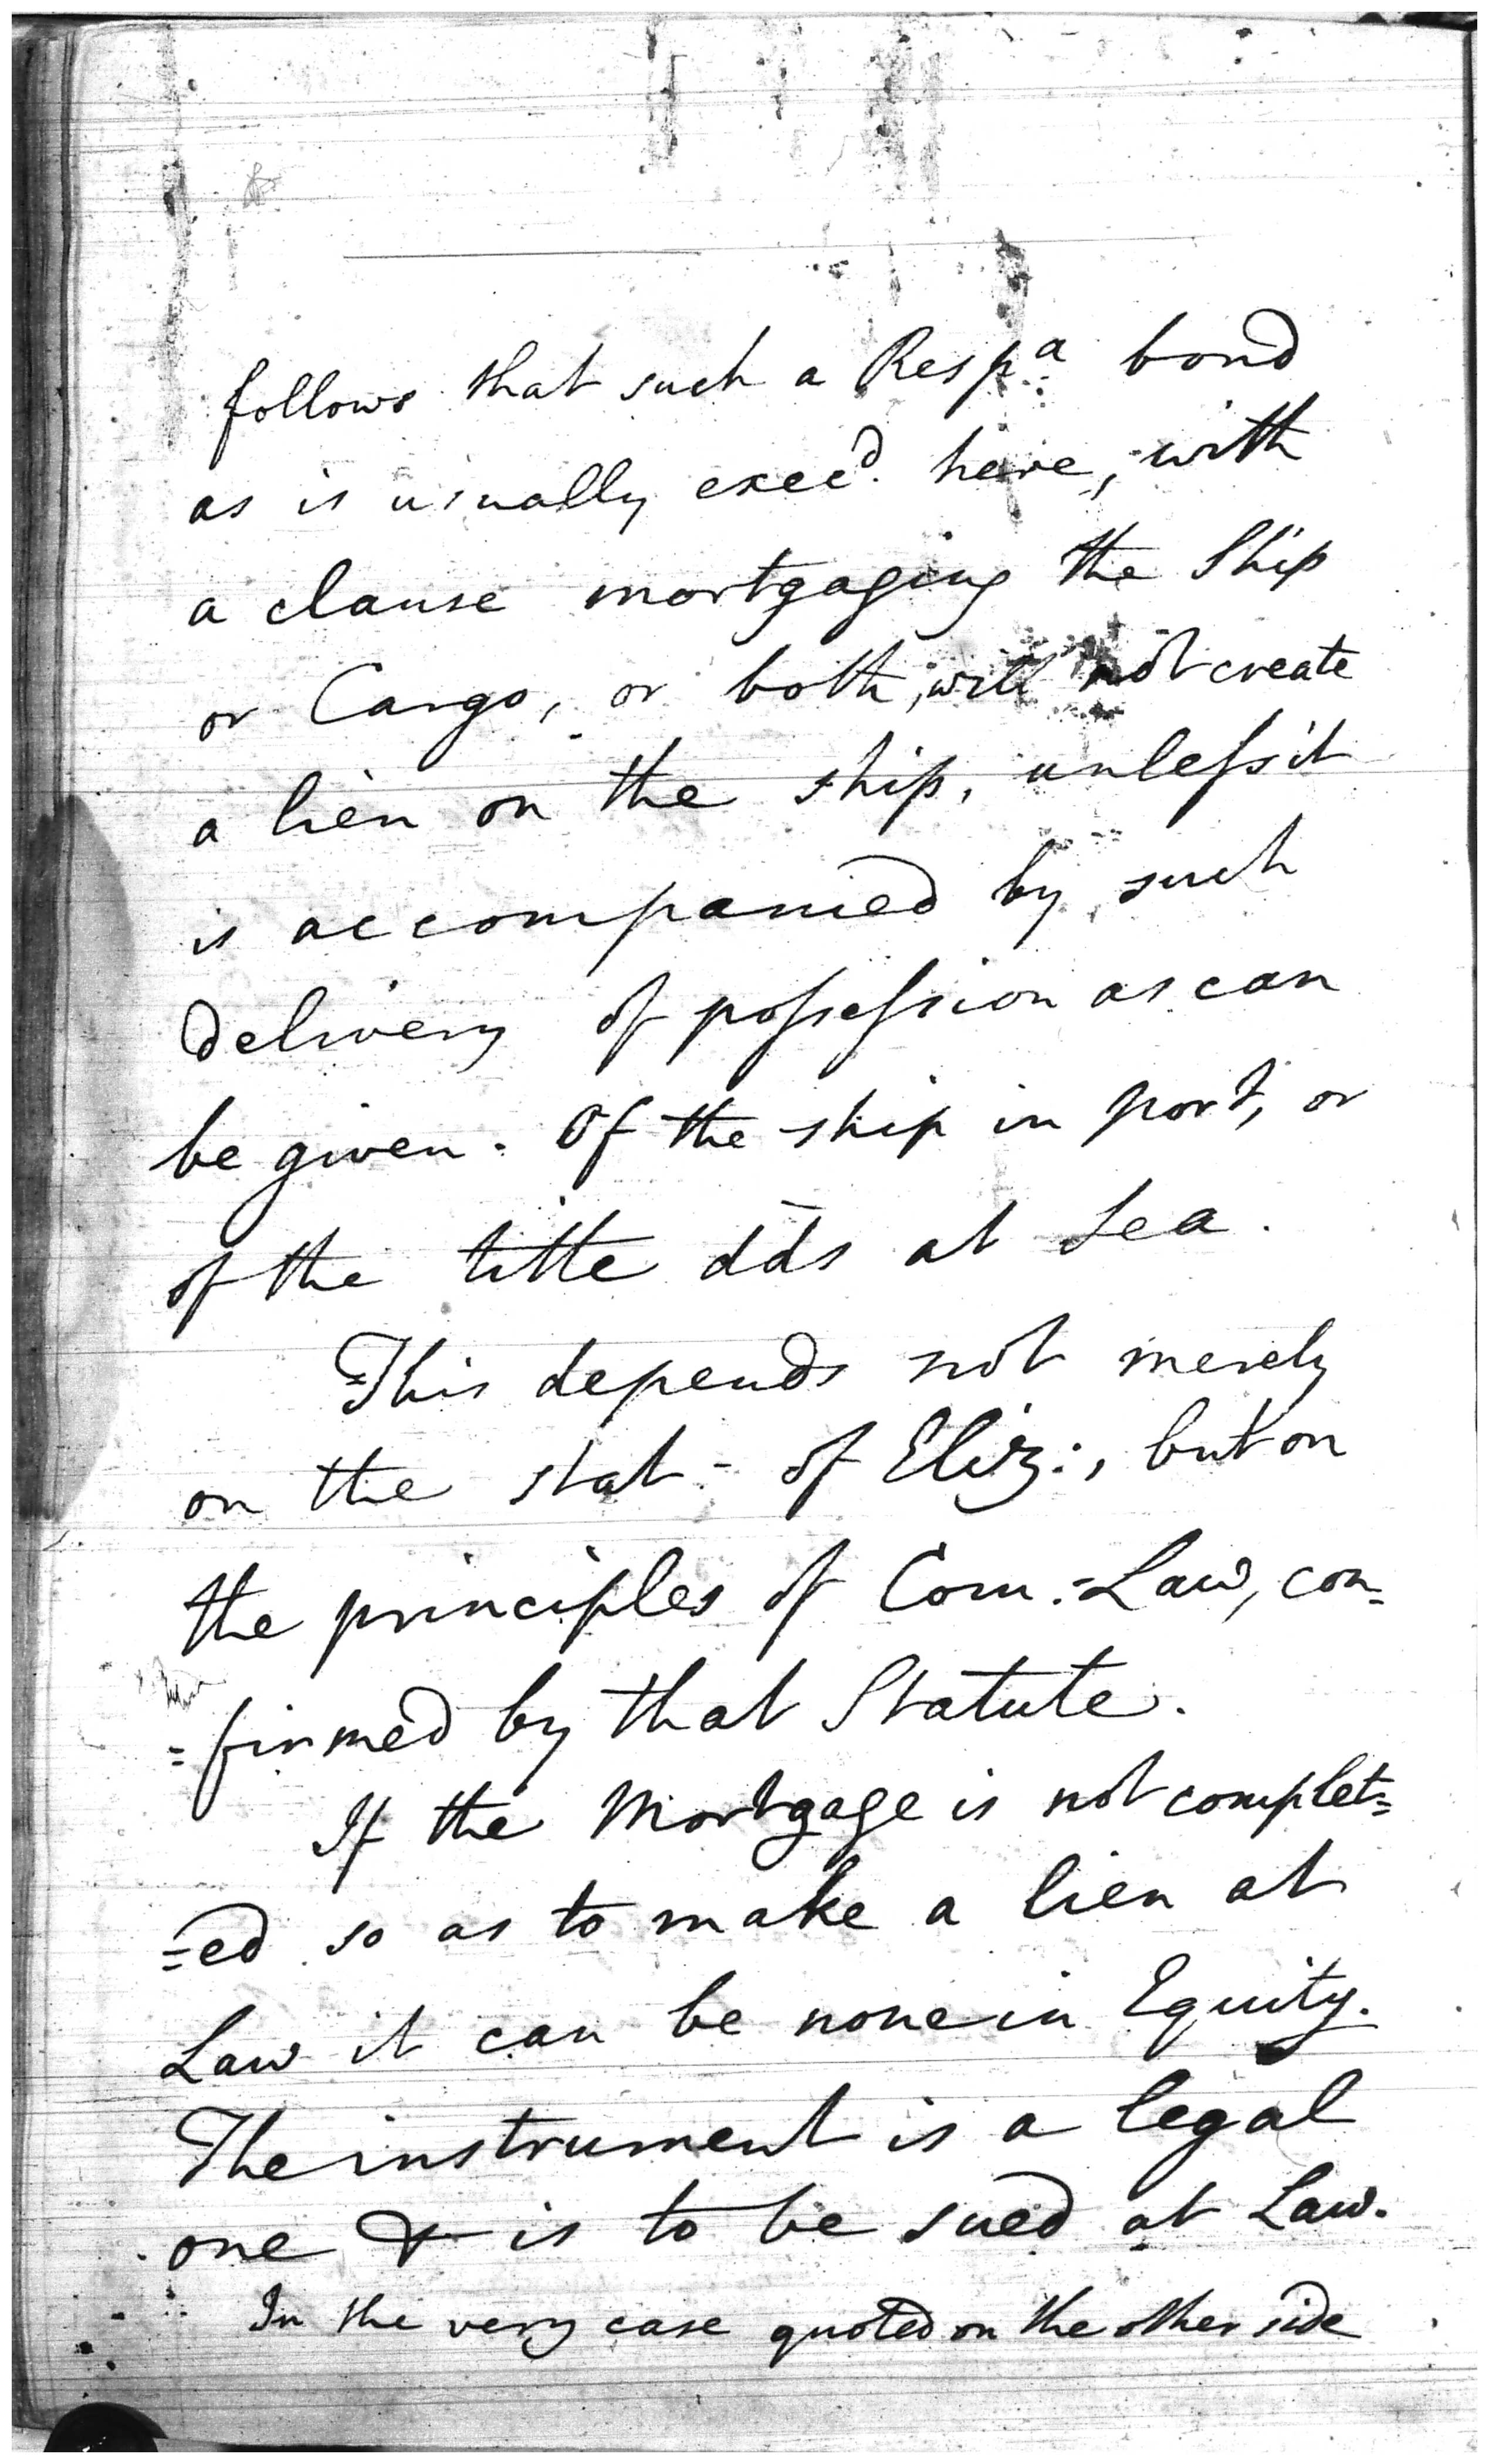 follows that such a Resp.ᵃ bond
as is usually exec.ᵈ here, with
a clause mortgaging the Ship
or Cargo, or both, will not create
a lien on the ship, unleſs it
is accompanied by such
delivery of poſseſsion as can
be given. Of the ship in port, or
of the title dds at Sea.
This depends not merely
on the stat. of Eliz:, but on
the principles of Com. Law, con=
=firmed by that Statute.
If the Mortgage is not complet=
=ed so as to make a lien at
Law it can be none in Equity.
The instrument is a legal
one & is to be sued at Law.
In the very case quoted on the other side